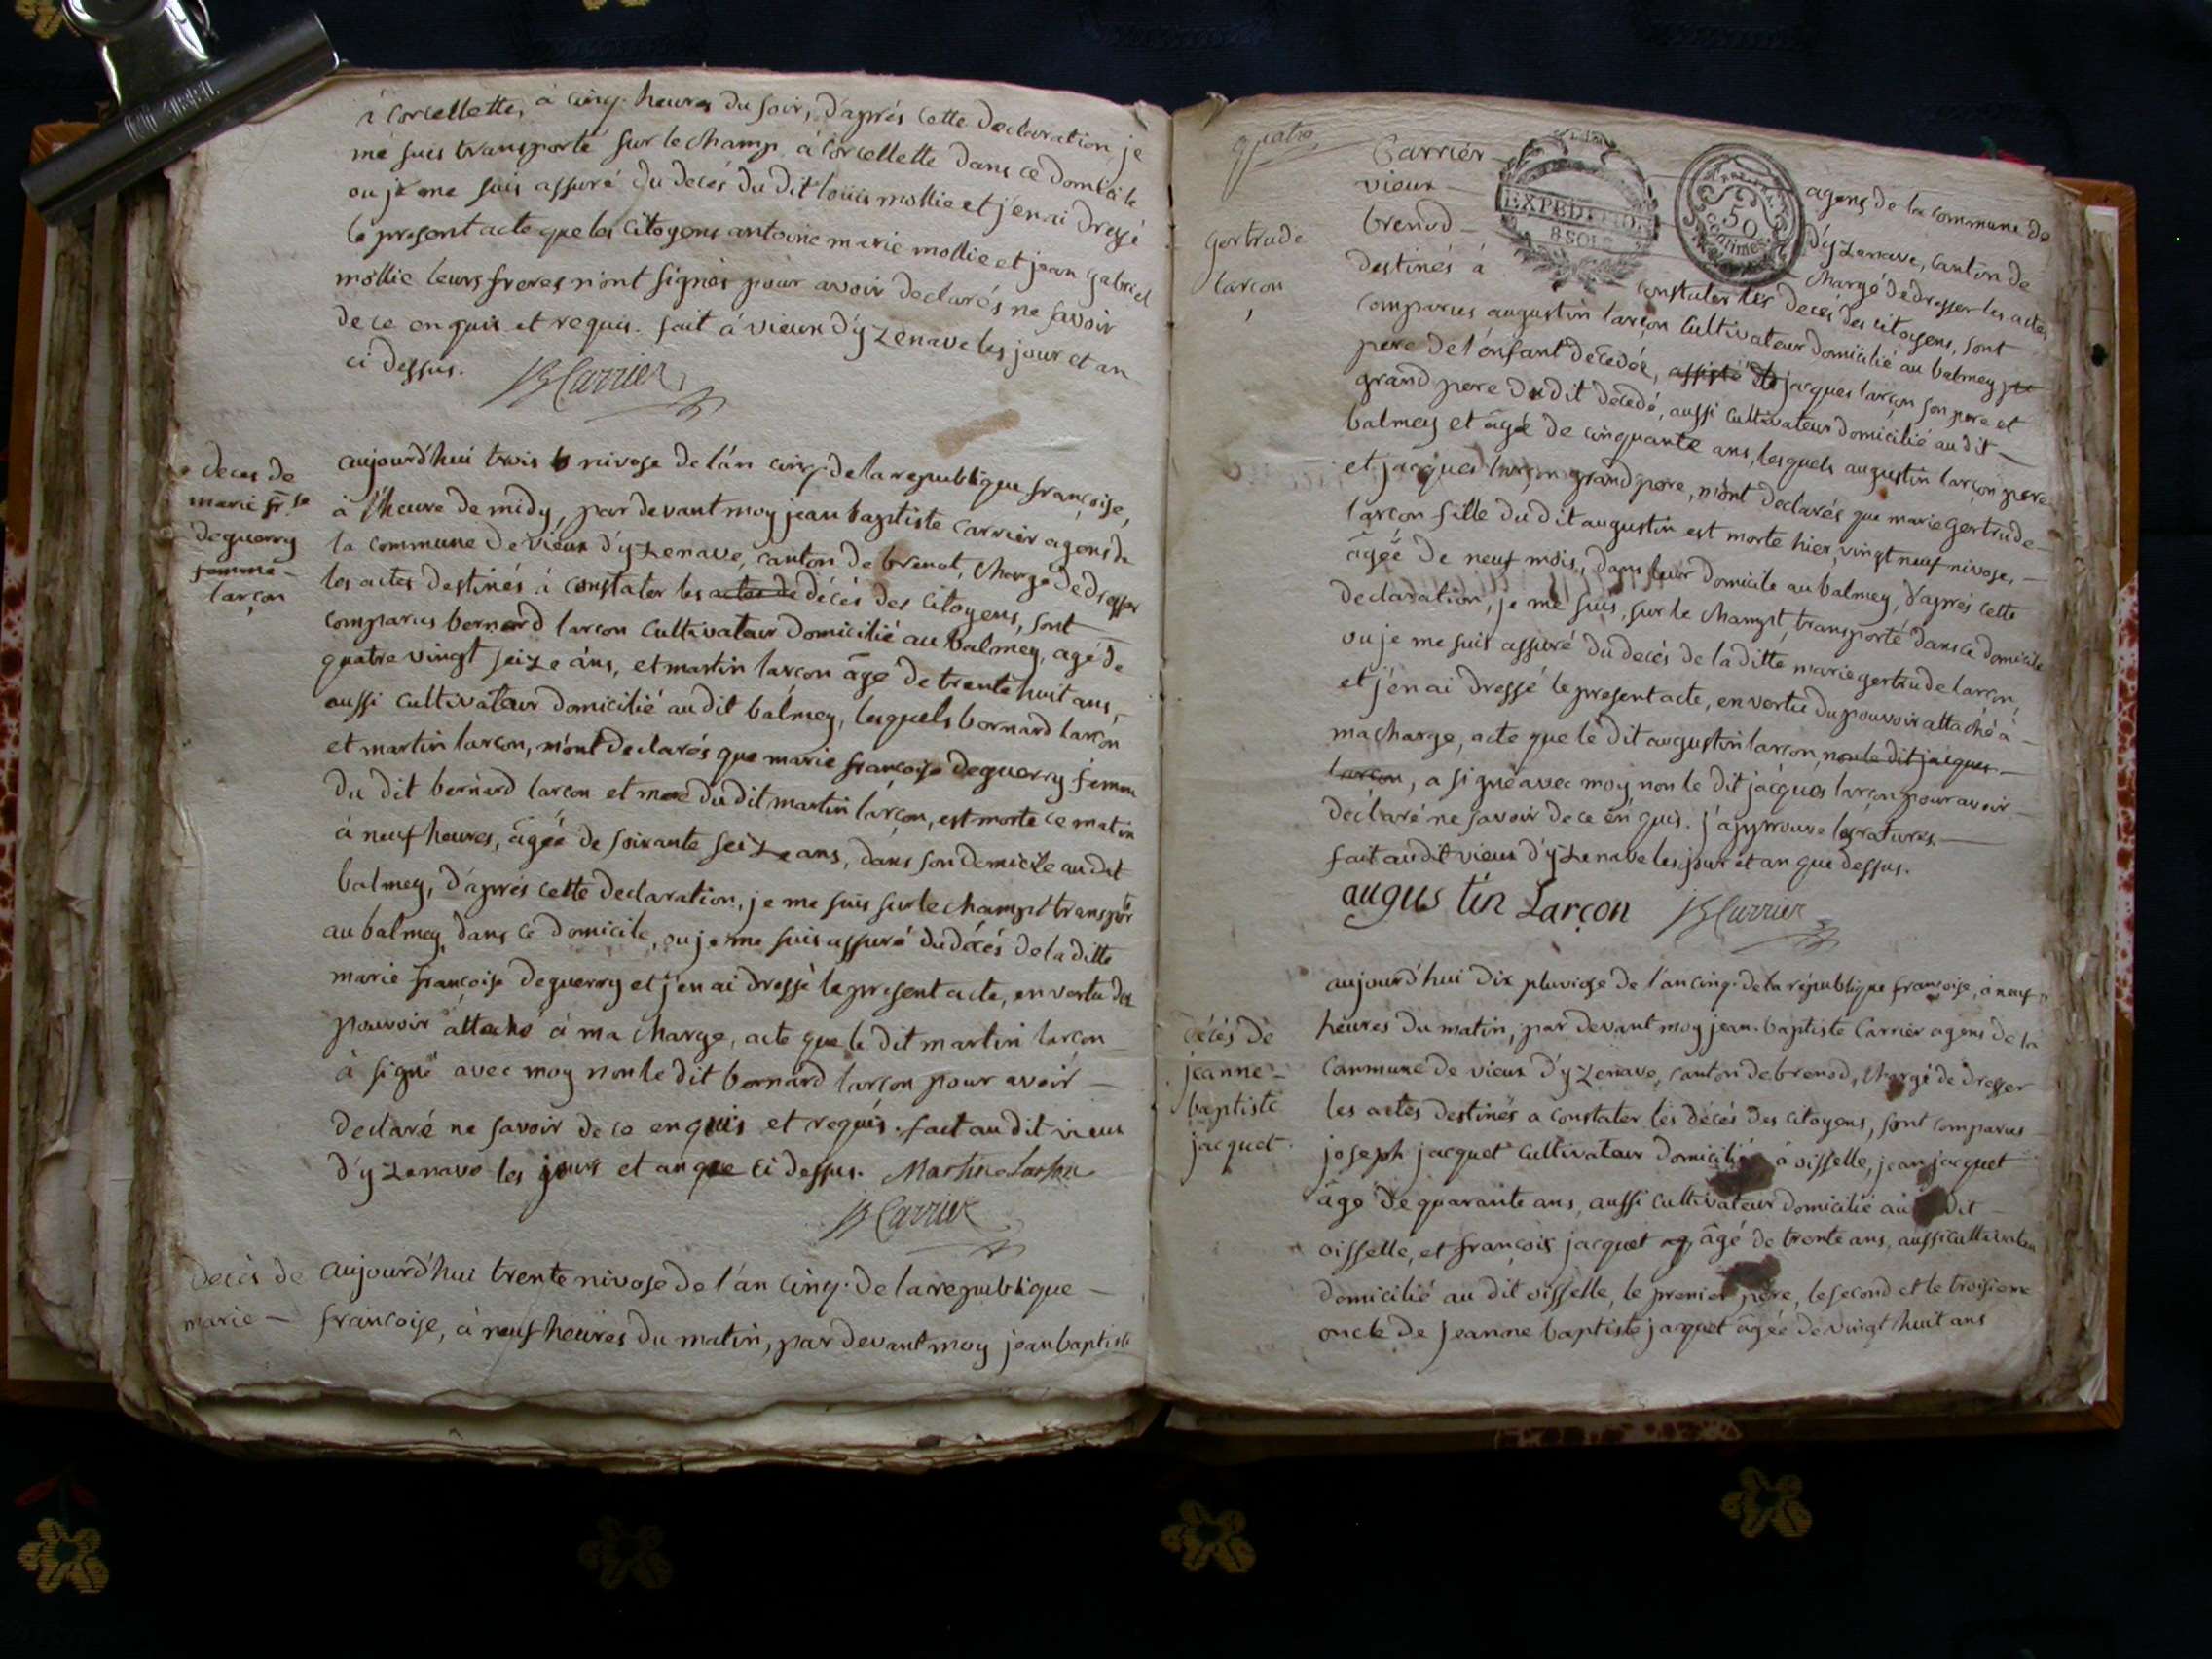 à corcellette, à cinq heures du soir, d'aprés cette declaration, je
me suis transporté sur le champ à corcellette dans ce domicile
ou je me suis assuré du decés du dit louis mollie et j'en ai dressé
le present acte que les citoyens antoine marie mollie et jean gabriel
mollie leurs freres n'ont signés pour avoir declarés ne savoir
de ce enquis et requis. fait à vieux d'yzenave les jour et an
ci dessus. JB Carrier
deces de
marie fr.se
deguerry
femme
larçon
aujourd'hui trois nivose de l'an cinq de la republique françoise,
à l'heure de midy, par devant moy jean baptiste carrier agens de
la commune de vieux d'yzenave, canton de brenot, chargé de dresser
les actes destinés à constater les actes de décés des citoyens, sont
comparus bernard larçon cultivateur domicilié au balmey, agé de
quatre vingt seize ans, et martin larçon âgé de trente huit ans,
aussi cultivateur domicilié au dit balmey, lesquels bernard larçon
et martin larçon, m'ont declarés que marie françoise deguerry femme
du dit bernard larçon et mere du dit martin larçon, est morte ce matin
à neuf heures, âgée de soixante seize ans, dans son domicile au dit
balmey, d'aprés cette declaration, je me suis sur le champt transporté
au balmey dans ce domicile, ou je me suis assuré du décés de la ditte
marie françoise deguerry et j'en ai dressé le present acte, en vertu du
pouvoir attaché à ma charge, acte que le dit martin larçon
à signé avec moy non le dit bernard larçon pour avoir
declaré ne savoir de ce enquis et requis. fait au dit vieux
d'yzenave les jours et an que ci dessus. Martin Larson
JB Carrier
decès de
marie
aujourd'hui trente nivose de l'an cinq de la republique
françoise, à neuf heures du matin, par devant moy jean baptiste
quatre
gertrude
larçon
Carrier agens de la commune de
vieux d'yzenave, canton de
brenod chargé de dresser les actes
destinés à constater les decés des citoyens, sont
EXPEDITIO.
8 SOLS
50
centimes
comparus augustin larçon cultivateur domicilié au balmey
pere de l'enfant decedée, assisté de jacques larçon son pere et
grand pere du dit decedé, aussi cultivateur domicilié au dit
balmey et âgé de cinquante ans, lesquels augustin larçon pere
et jacques larçon grand pere, m'ont declarés que marie gertrude
larçon fille du dit augustin est morte hier, vingt neuf nivose,
âgée de neuf mois, dans leur domicile au balmey, d'aprés cette
declaration, je me suis, sur le champt, transporté dans ce domicile
ou je me suis assuré du decés de la ditte marie gertrude larçon,
et j'en ai dressé le present acte, en vertu du pouvoir attaché à
ma charge, acte que le dit augustin larçon, non le dit jacques
larçon, a signé avec moy non le dit jacques larçon pour avoir
déclaré ne savoir de ce enquis. j'approuve les ratures.
fait au dit vieux d'yzenave les jour et an que dessus.
augustin Larçon JB Carrier
décés de
jeanne
baptiste
jacquet
aujourd'hui dix pluviose de l'an cinq de la république françoise, à neuf
heures du matin, par devant moy jean baptiste Carrier agens de la
commune de vieux d'yzenave, canton de brenod, chargé de dresser
les actes destinés a constater les décés des citoyens, sont comparus
joseph jacquet cultivateur domicilié à oisselle, jean jacquet
âgé de quarante ans, aussi cultivateur domicilié au dit
oisselle, et françois jacquet âgé de trente ans, aussi cultivateur
domicilié au dit oisselle, le premier père, le second et le troisieme
oncle de jeanne baptiste jaquet âgée de vingt huit ans